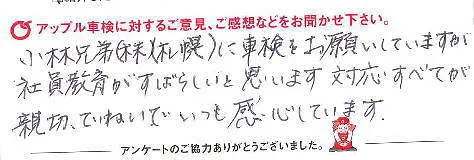 アップル車検に対するご意見、ご感想などをお聞かせ下さい。
小林兄弟(株)(札幌)に車検をお願いしていますが
社員教育がすばらしいと思います 対応すべてが
親切、ていねいでいつも感心しています.
アンケートのご協力ありがとうございました。